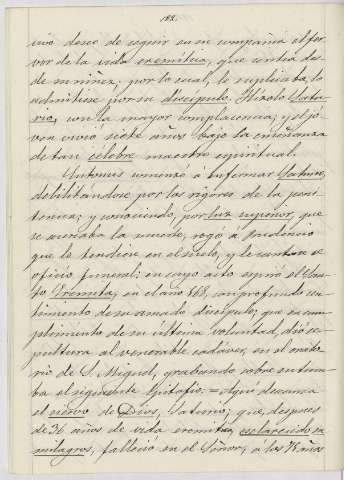 188.
vivo deseo de seguir en su compañia el fer-
vor de la vida eremítica, que sentia des-
de su niñez; por lo cual, le suplicaba lo
admitiese por su discípulo. Hízolo Satu-
rio, con la mayor complacencia; y el jó-
ven vivió siete años bajo la enseñanza
de tan célebre maestro espiritual.
Entonces comenzó a enfermar Saturio,
debilitándose por los rigores de la peni-
tencia; y conociendo, por luz superior, que
se acercaba la muerte, rogó a Prudencio
que le tendiese en el suelo, y le cantase el
oficio funeral; en cuyo acto espiró el San-
to Eremita, en el año 568, con profundo sen-
timiento de su amado discípulo; que en cum-
plimiento de su última voluntad, dió se-
pultura al venerable cadáver, en el orato-
rio de S. Miguel, grabando sobre su tum-
ba el siguiente Epitafio: = Aquí descansa
el siervo de Dios, Saturio; que, despues
de 36 años de vida eremita, esclarecido en
milagros, falleció en el Señor, á los 75 años